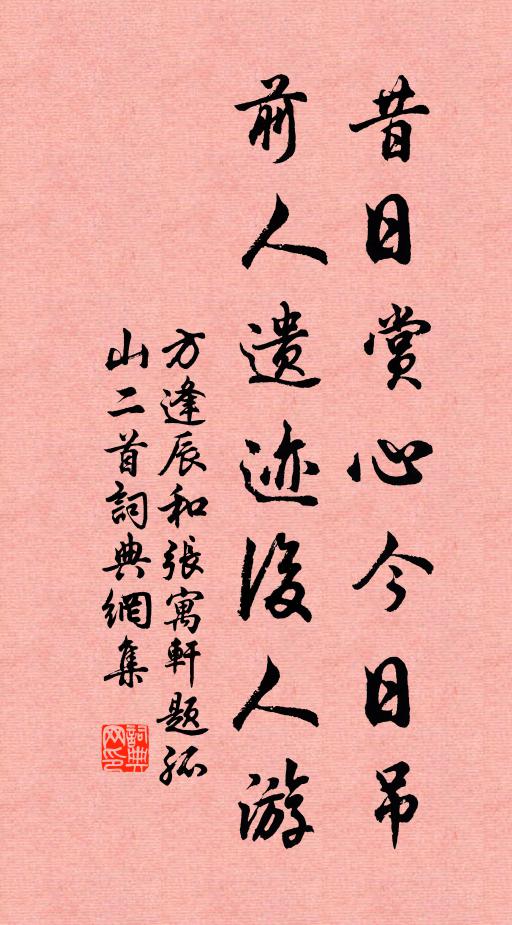 昔日賞心今日吊
前人遗迹後人游
方逢辰和張寓軒題孤
山二首詞典網集
詞典网印